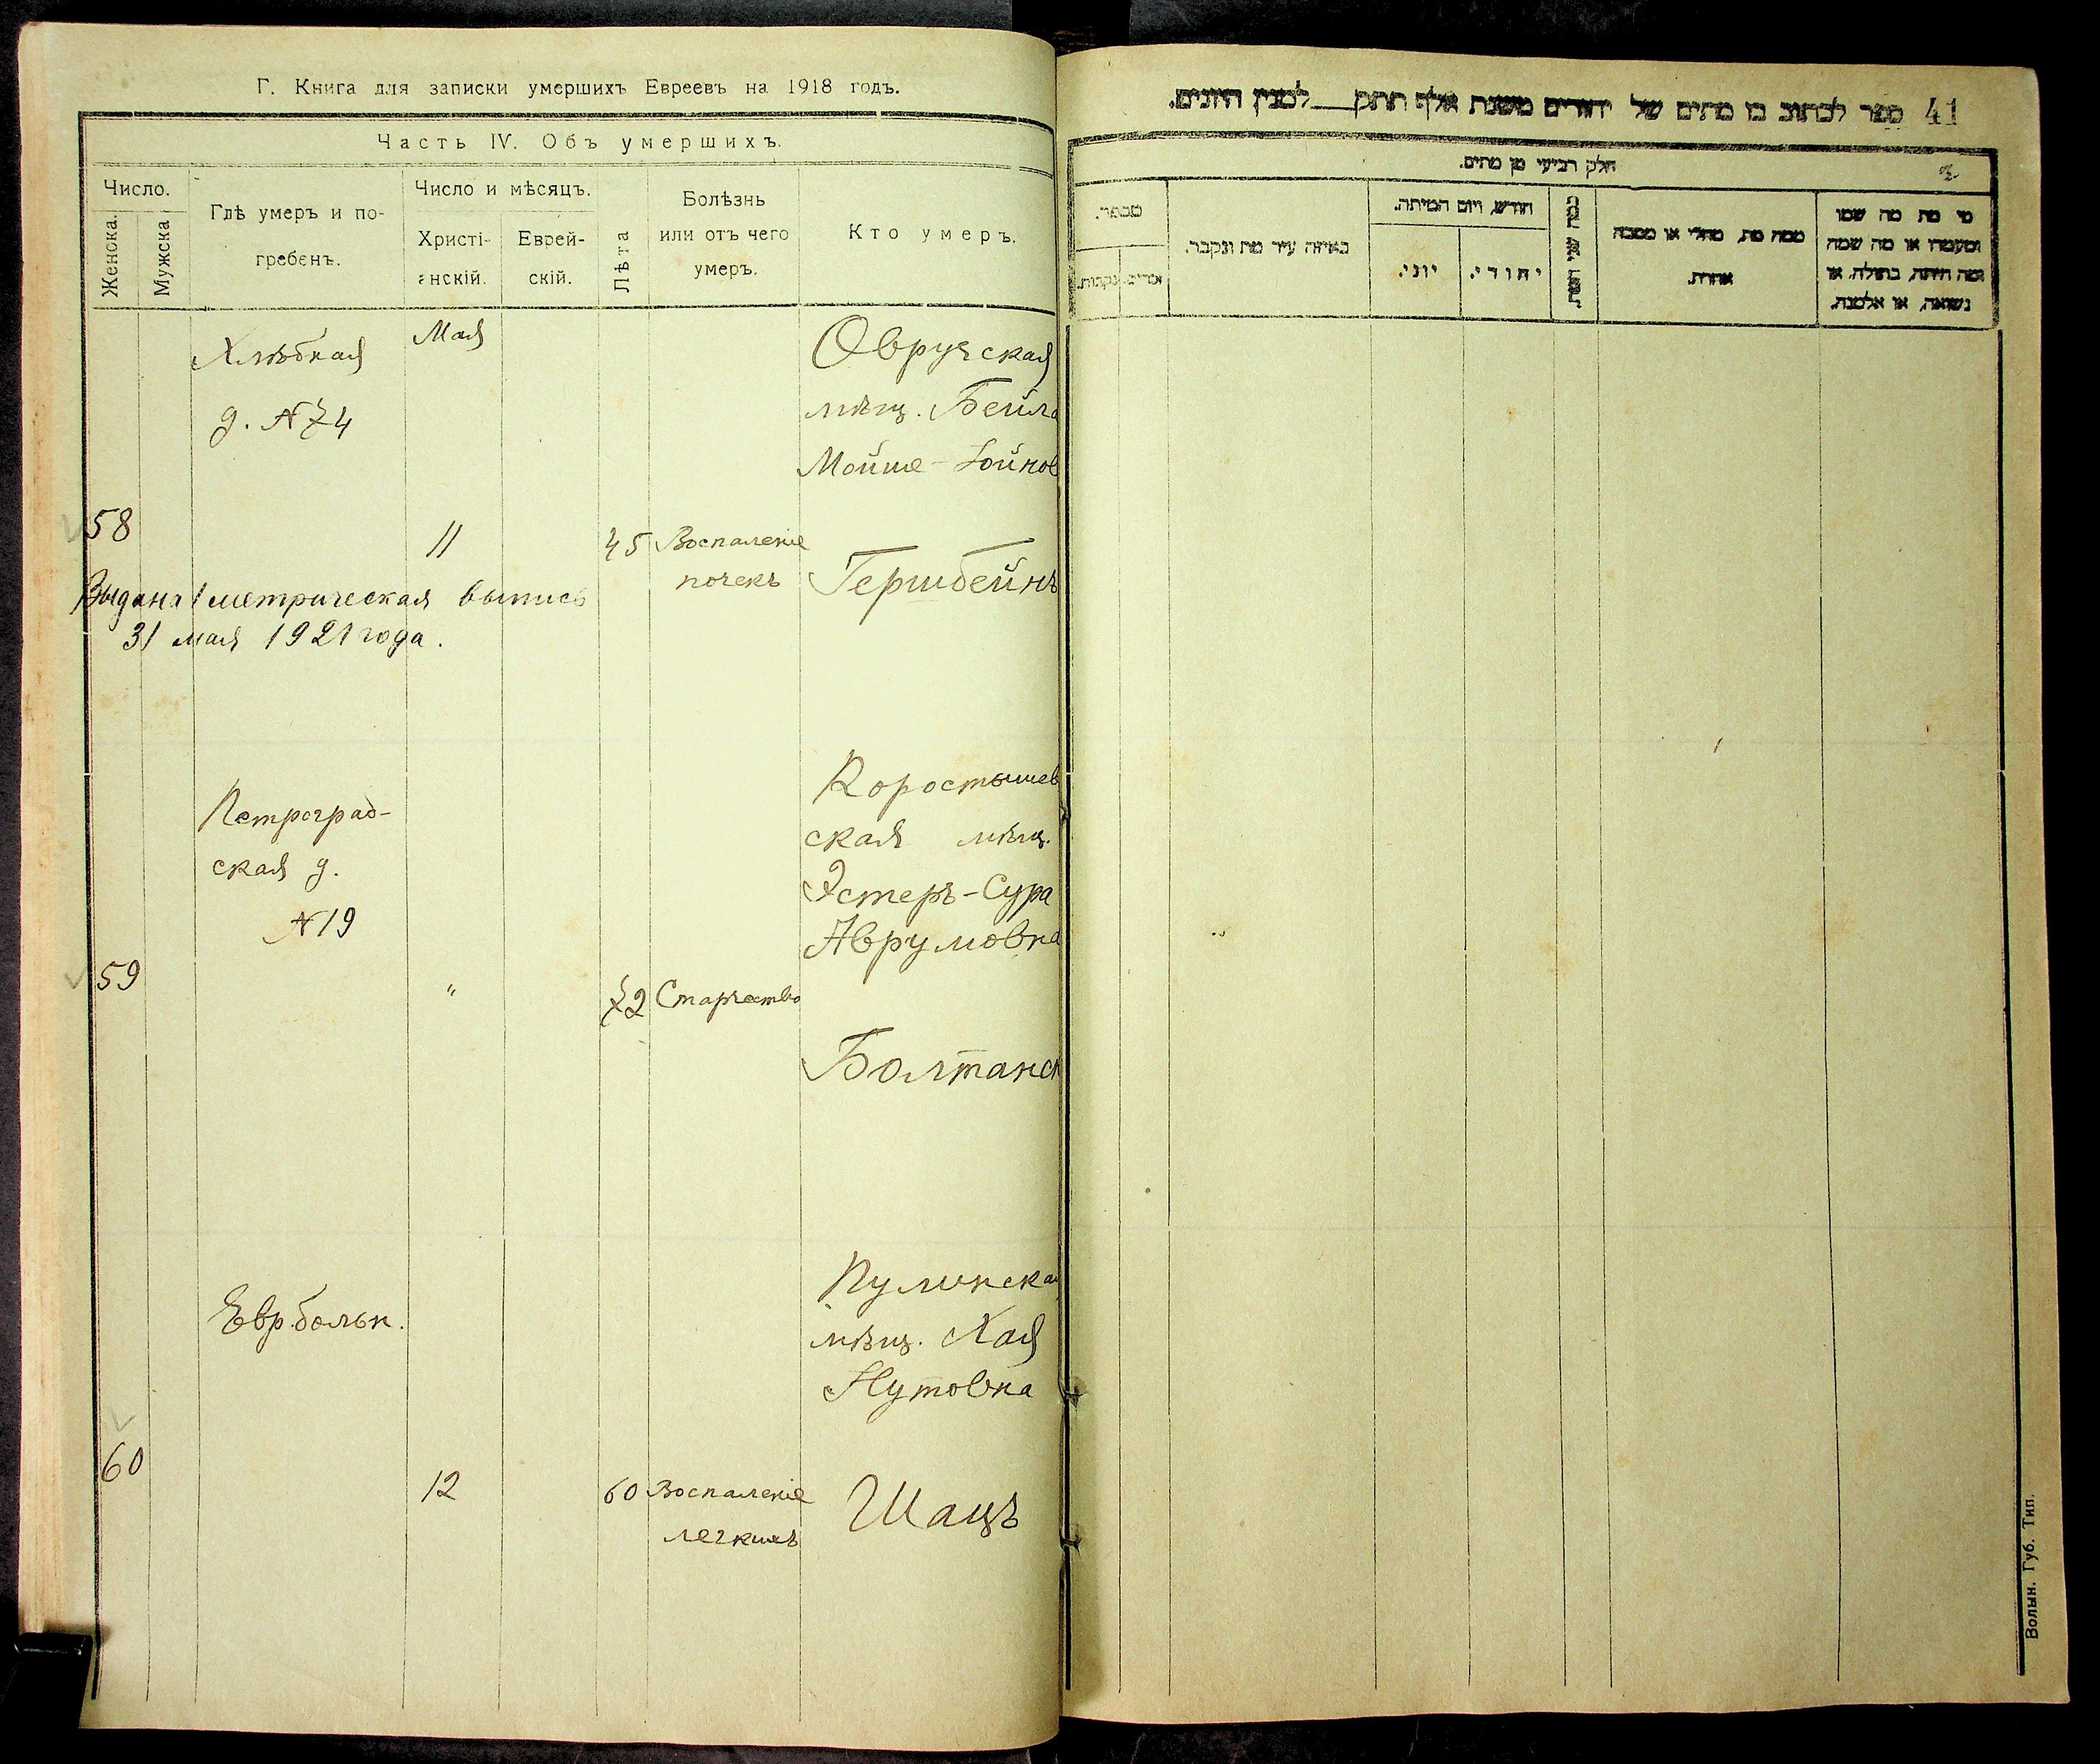 Г. Книга для записки умершихъ Евреевъ на 1918 годъ.
Часть IV. Объ умершихъ.
Число.
Женска.
Мужска
Гдѣ умеръ и по-
гребенъ.
Число и мѣсяцъ.
Христі-
анскій.
Еврей-
скій.
Лѣта
Болѣзнь
или отъ чего
умеръ.
Кто умеръ.
Хлѣбная
д. № 74
Мая
Овручская
мѣщ. Бейла
Мойше-Хойнов
58
11
45
Воспаленіе
почекъ
Гершбейнъ
Выдана метрическая выпись
31 мая 1921 года.
Петроград-
ская д.
№ 19
Коростышев
ская мѣщ.
Эстеръ-Сура
Аврумовна
59
"
72
Старчество
Болтанск
Евр. больн.
Пулинская
мѣщ. Хая
Нутовна
60
12
60
Воспаленіе
легкихъ
Шацъ
41
ספר לכתוב בו מתים של יהודים משנת אלף תתק__ למנין היונים.
חלק רביעי מן מתים.
מספר.
זכרים.
נקבות.
באיזה עיר מת ונקבר.
חודש, ויום המיתה.
יוני.
יהודי.
כמה שני חייו.
ממה מת, מחלי או מסבה
אחרת.
מי מת מה שמו
ומעמדו או מה שמה
ומה היתה, בתולה, או
נשואה, או אלמנה.
Волын. Губ. Тип.